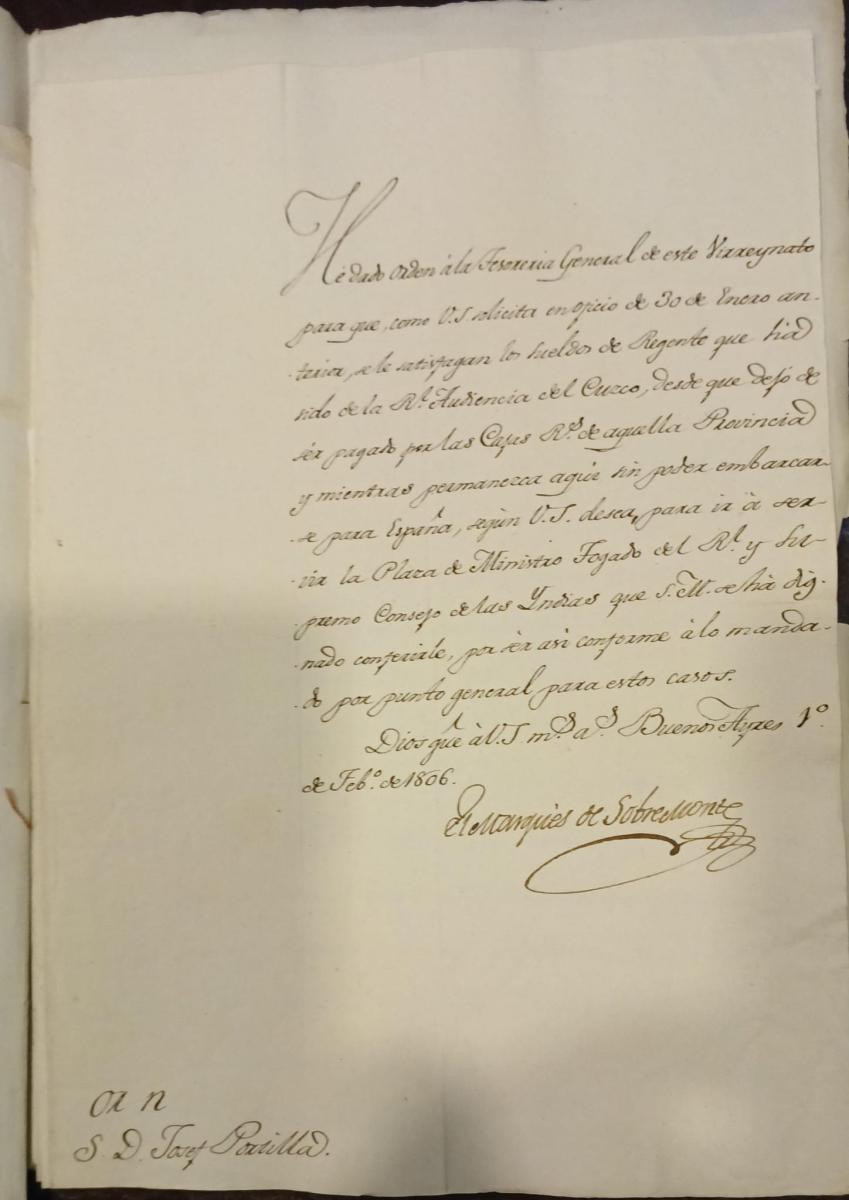 Hé dado orden à la Tesoreria General de este Virreynato
para que, como V.S. solicita en oficio de 30 de Enero an-
-terior, se le satisfagan los sueldos de Regente que há
sido de la Rl. Audiencia del Cuzco, desde que dejó de
sér pagado por las Cajas Rs. de aquella Provincia
y mientras permanezca aquí sin poder embarcar-
-se para España, según V.S. desea, para ir à ser-
-vir la Plaza de Ministro Togado del Rl. y Su-
-premo Consejo de las Yndias que S.M. se há dig-
-nado conferirle, por sér asi conforme à lo manda-
-do por punto general para estos casos.
Dios gũe à V.S. ms. as. Buenos Ayres 1º
de Febº. de 1806.
El Marques de SobreMonte
S. D. Josef Portilla.